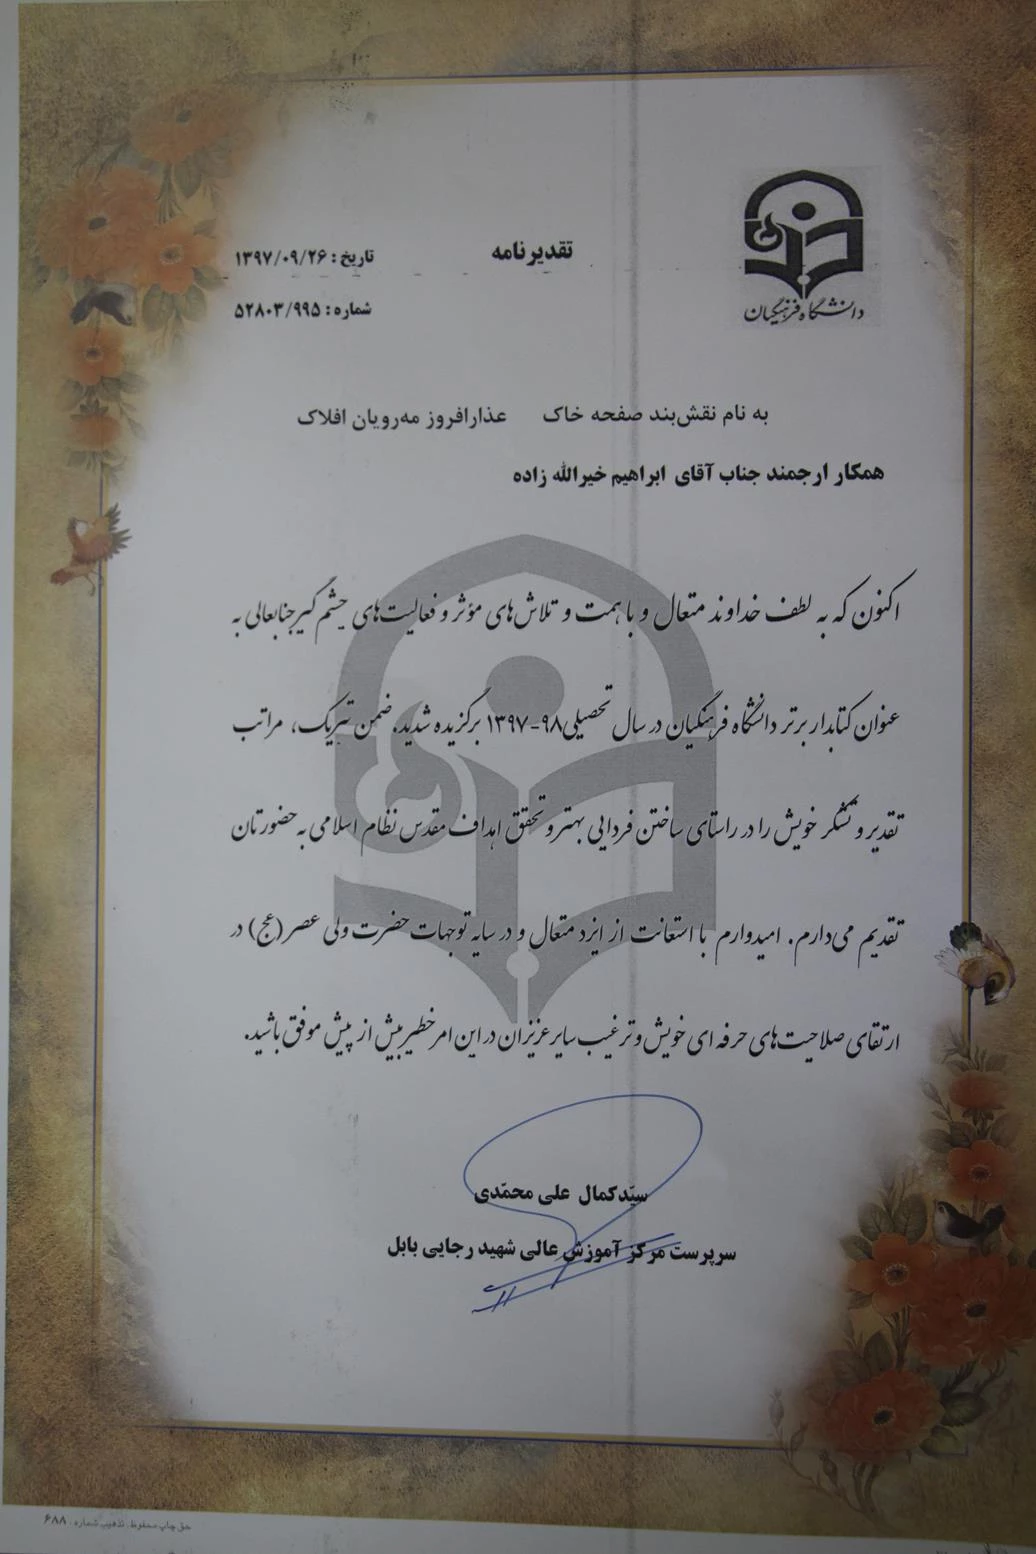 دانشگاه فرهنگیان
تقدیرنامه
تاریخ : ۱۳۹۷/۰۹/۲۶
شماره : ۵۲۸۰۳/۹۹۵
به نام نقش‌بند صفحه خاک عذارافروز مه‌رویان افلاک
همکار ارجمند جناب آقای ابراهیم خیرالله زاده
اکنون که به لطف خداوند متعال و با همت و تلاش‌های مؤثر و فعالیت‌های چشم گیر جنابعالی به
عنوان کتابدار برتر دانشگاه فرهنگیان در سال تحصیلی ۹۸-۱۳۹۷ برگزیده شدید، ضمن تبریک، مراتب
تقدیر و تشکر خویش را در راستای ساختن فردایی بهتر و تحقق اهداف مقدس نظام اسلامی به حضورتان
تقدیم می‌دارم. امیدوارم با استعانت از ایزد متعال و در سایه توجهات حضرت ولی عصر (عج) در
ارتقای صلاحیت‌های حرفه ای خویش و ترغیب سایر عزیزان در این امر خطیر بیش از پیش موفق باشید.
سیّدکمال علی محمّدی
سرپرست مرکز آموزش عالی شهید رجایی بابل
حق چاپ محفوظ. تذهیب شماره : ۶۸۸